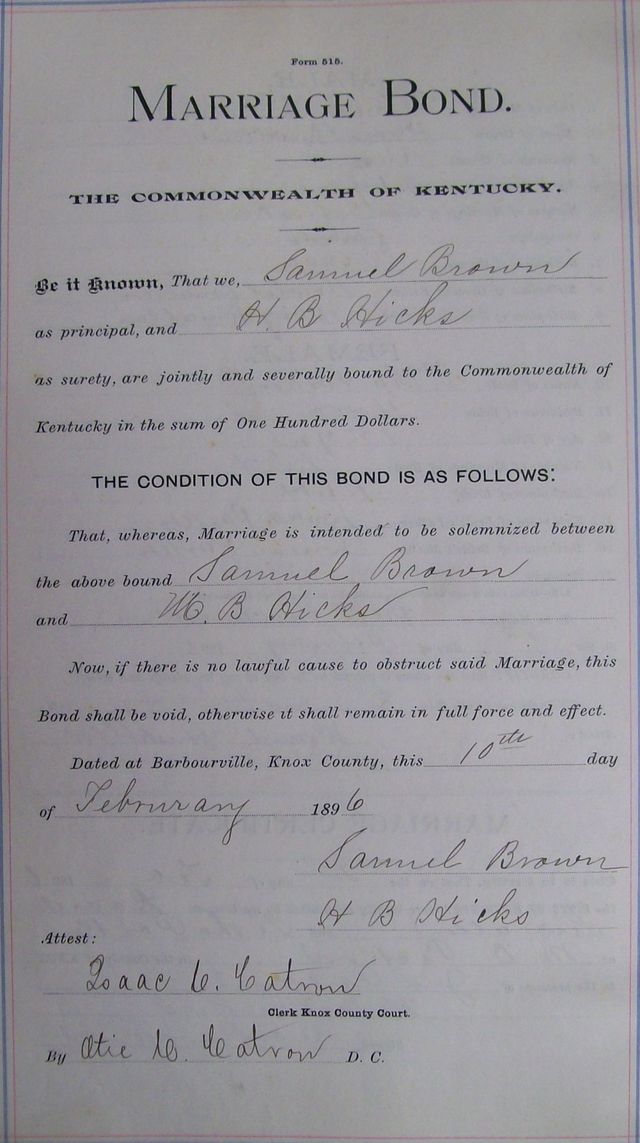 Form 515.
MARRIAGE BOND.
THE COMMONWEALTH OF KENTUCKY.
Be it Known, That we, Samuel Brown
as principal, and H B Hicks
as surety, are jointly and severally bound to the Commonwealth of
Kentucky in the sum of One Hundred Dollars.
THE CONDITION OF THIS BOND IS AS FOLLOWS:
That, whereas, Marriage is intended to be solemnized between
the above bound Samuel Brown
and M. B Hicks
Now, if there is no lawful cause to obstruct said Marriage, this
Bond shall be void, otherwise it shall remain in full force and effect.
Dated at Barbourville, Knox County, this 10th day
of Februrary 1896
Samuel Brown
H B Hicks
Attest:
Isaac C. Catron
Clerk Knox County Court.
By Otie C. Catron D. C.